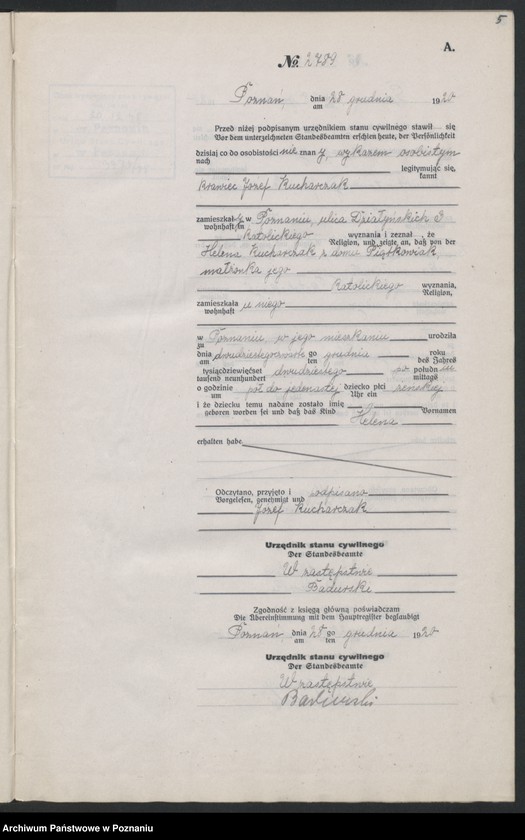 5
A.
№ 2789
Poznań, dnia 28 grudnia 1920
am
Przed niżej podpisanym urzędnikiem stanu cywilnego stawił się
Vor dem unterzeichneten Standesbeamten erschien heute, der Persönlichkeit
dzisiaj co do osobistości nie znany, wykazem osobistym
nach
legitymując się,
kannt
krawiec Józef Kucharczak
zamieszkały w Poznaniu, ulica Działyńskich 3
wohnhaft in
katolickiego wyznania i zeznał, że
Religion, und zeigte an, daß von der
Helena Kucharczak z domu Piątkowiak
małżonka jego
katolickiego wyznania,
Religion,
zamieszkała u niego
wohnhaft
w Poznaniu, w jego mieszkaniu urodziła
zu
dnia go grudnia roku
am ten des Jahres
tysiącdziewięćset dwudziestego połudn
tausend neunhundert mittags
o godzinie pół do jedenastej dziecko płci żeńskiej
um Uhr ein
i że dziecku temu nadane zostało imię
geboren worden sei und daß das Kind Vornamen
Helena
erhalten habe
Odczytano, przyjęto i podpisano
Vorgelesen, genehmigt und
Józef Kucharczak
Urzędnik stanu cywilnego
Der Standesbeamte
W zastępstwie
Zgodność z księgą główną poświadczam
Die Übereinstimmung mit dem Hauptregister beglaubigt
Poznań dnia 28 go grudnia 1920
am ten
Urzędnik stanu cywilnego
Der Standesbeamte
W zastępstwie
Archiwum Państwowe w Poznaniu
szukajwarchiwach.pl